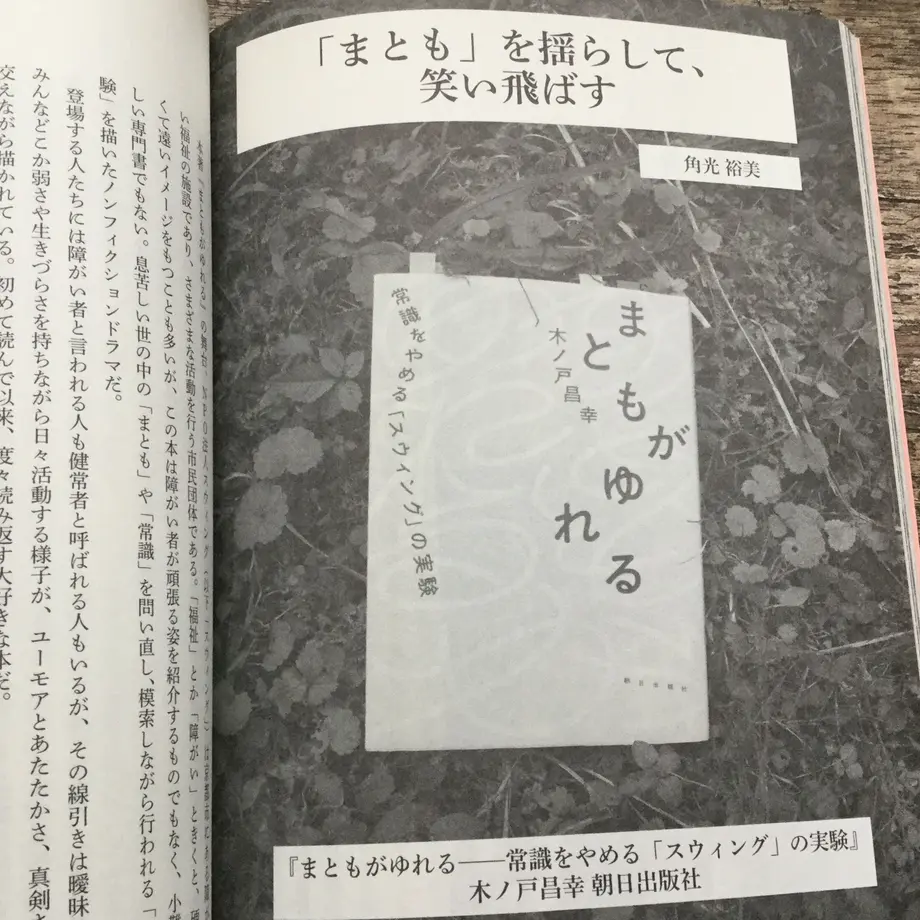 「まとも」を揺らして、
笑い飛ばす
角光 裕美
まともがゆれる
木ノ戸昌幸
常識をやめる「スウィング」の実験
朝日出版社
『まともがゆれる――常識をやめる「スウィング」の実験』
木ノ戸昌幸 朝日出版社
い福祉の施設であり、さまざまな活動を行う市民団体である。「福祉」とか「障がい」ときくと、
くて遠いイメージをもつことも多いが、この本は障がい者が頑張る姿を紹介するものでもなく、小
しい専門書でもない。息苦しい世の中の「まとも」や「常識」を問い直し、模索しながら行われる「
験」を描いたノンフィクションドラマだ。
登場する人たちには障がい者と言われる人も健常者と呼ばれる人もいるが、その線引きは曖昧
みんなどこか弱さや生きづらさを持ちながら日々活動する様子が、ユーモアとあたたかさ、真剣
交えながら描かれている。初めて読んで以来、度々読み返す大好きな本だ。